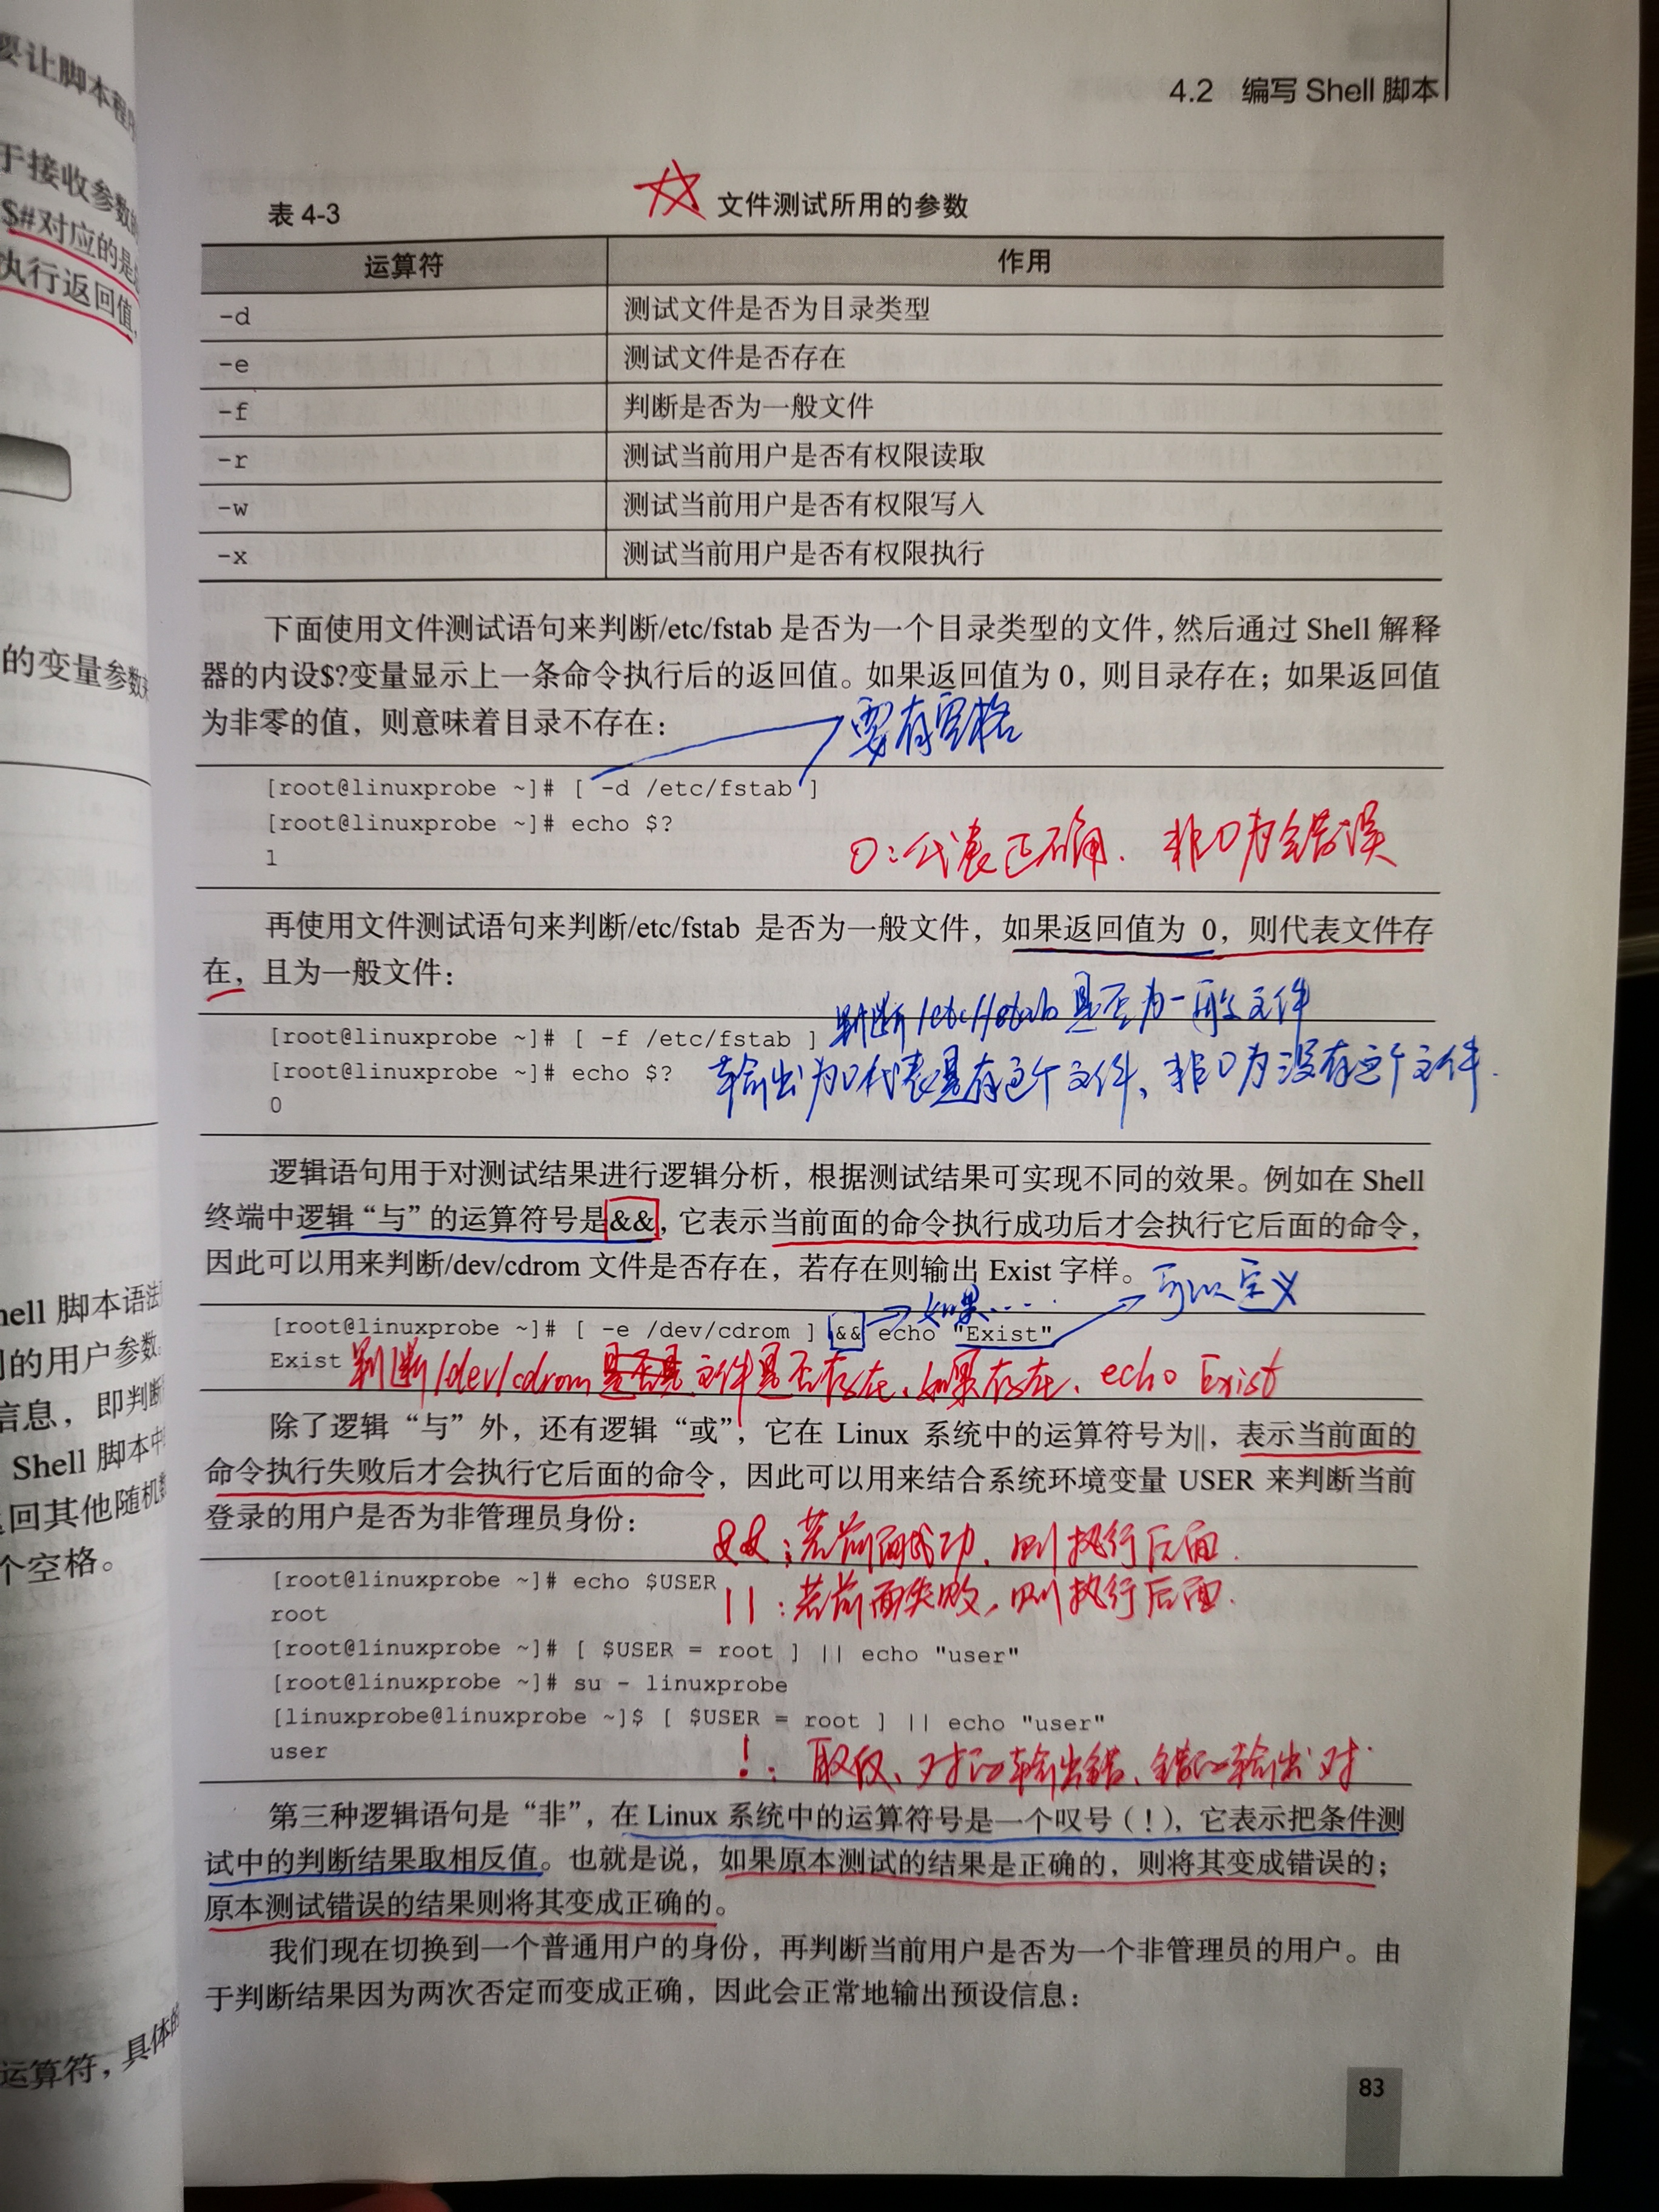 4.2 编写 Shell 脚本
表 4-3 文件测试所用的参数
运算符 作用
-d 测试文件是否为目录类型
-e 测试文件是否存在
-f 判断是否为一般文件
-r 测试当前用户是否有权限读取
-w 测试当前用户是否有权限写入
-x 测试当前用户是否有权限执行
下面使用文件测试语句来判断/etc/fstab 是否为一个目录类型的文件，然后通过 Shell 解释
器的内设$?变量显示上一条命令执行后的返回值。如果返回值为 0，则目录存在；如果返回值
为非零的值，则意味着目录不存在：
要有空格
[root@linuxprobe ~]# [ -d /etc/fstab ]
[root@linuxprobe ~]# echo $?
1
0:代表正确. 非0为错误
再使用文件测试语句来判断/etc/fstab 是否为一般文件，如果返回值为 0，则代表文件存
在，且为一般文件：
判断/etc/fstab是否为一般文件
[root@linuxprobe ~]# [ -f /etc/fstab ]
[root@linuxprobe ~]# echo $?
输出为0代表是有这个文件、非0为没有这个文件.
0
逻辑语句用于对测试结果进行逻辑分析，根据测试结果可实现不同的效果。例如在 Shell
终端中逻辑“与”的运算符号是&&，它表示当前面的命令执行成功后才会执行它后面的命令，
因此可以用来判断/dev/cdrom 文件是否存在，若存在则输出 Exist 字样。
如果.... 可以定义
[root@linuxprobe ~]# [ -e /dev/cdrom ] && echo "Exist"
Exist
判断/dev/cdrom 文件是否存在、如果存在、echo Exist
除了逻辑“与”外，还有逻辑“或”，它在 Linux 系统中的运算符号为||，表示当前面的
命令执行失败后才会执行它后面的命令，因此可以用来结合系统环境变量 USER 来判断当前
登录的用户是否为非管理员身份：
&&:若前面成功、则执行后面.
[root@linuxprobe ~]# echo $USER
||:若前面失败，则执行后面.
root
[root@linuxprobe ~]# [ $USER = root ] || echo "user"
[root@linuxprobe ~]# su - linuxprobe
[linuxprobe@linuxprobe ~]$ [ $USER = root ] || echo "user"
user
!: 取反、对的输出错、错的输出对.
第三种逻辑语句是“非”，在 Linux 系统中的运算符号是一个叹号（!），它表示把条件测
试中的判断结果取相反值。也就是说，如果原本测试的结果是正确的，则将其变成错误的；
原本测试错误的结果则将其变成正确的。
我们现在切换到一个普通用户的身份，再判断当前用户是否为一个非管理员的用户。由
于判断结果因为两次否定而变成正确，因此会正常地输出预设信息：
83
要让脚本程
于接收参数
$#对应的是
执行返回值，
的变量参数
hell 脚本语法
的用户参数
信息，即判断
Shell 脚本中
回其他随机数
个空格。
运算符，具体的